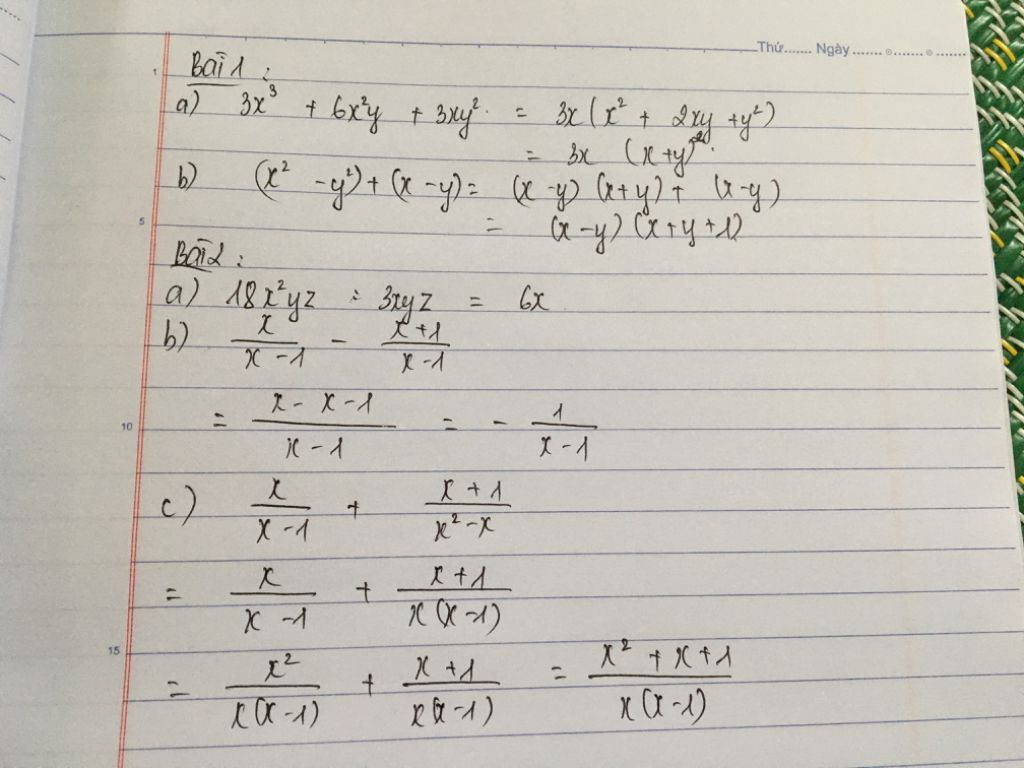 Thứ....... Ngày........ ........ ........
1
Bài 1 :
a) 3x³ + 6x²y + 3xy² = 3x(x² + 2xy + y²)
= 3x (x+y)².
b) (x² - y²) + (x - y) = (x - y) (x+y) + (x-y)
5
= (x-y) (x+y+1)
Bài 2 :
a) 18x²yz : 3xyz = 6x
b) x/(x-1) - (x+1)/(x-1)
10
= (x - x - 1)/(x-1) = - 1/(x-1)
c) x/(x-1) + (x+1)/(x²-x)
= x/(x-1) + (x+1)/(x(x-1))
15
= x²/(x(x-1)) + (x+1)/(x(x-1)) = (x²+x+1)/(x(x-1))